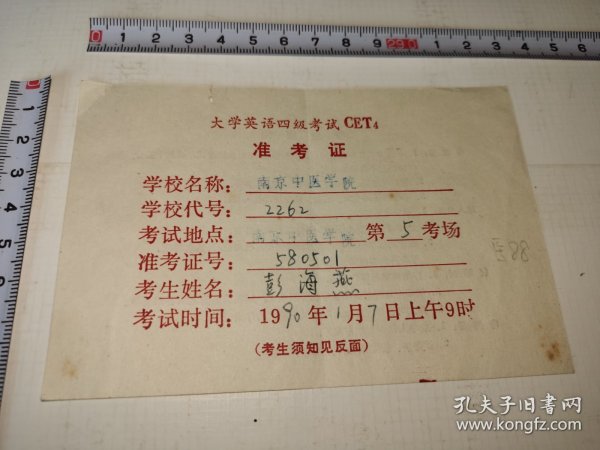 0 1 2 3 4 5 6 7 8 9 290 1 2 3 4 5
大学英语四级考试CET4
准考证
学校名称：南京中医学院
学校代号：2262
考试地点：南京中医学院 第5考场
准考证号：580501
考生姓名：彭海燕
考试时间：1990年1月7日上午9时
（考生须知见反面）
孔夫子旧书网
www.kongfz.com